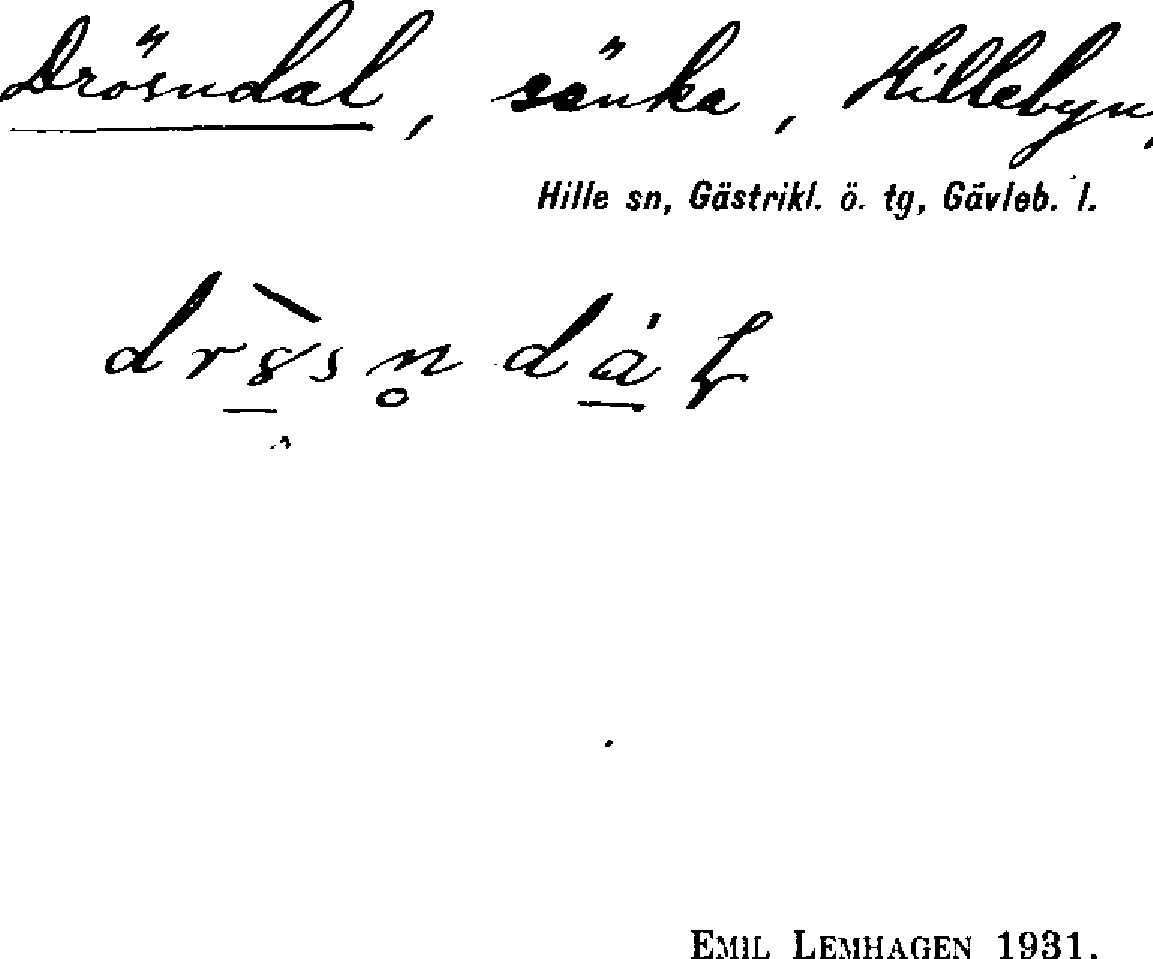 Drösndal, sänka, Hillebyn,
Hille sn, Gästrikl. ö. tg, Gävleb. l.
EMIL LEMHAGEN 1931.